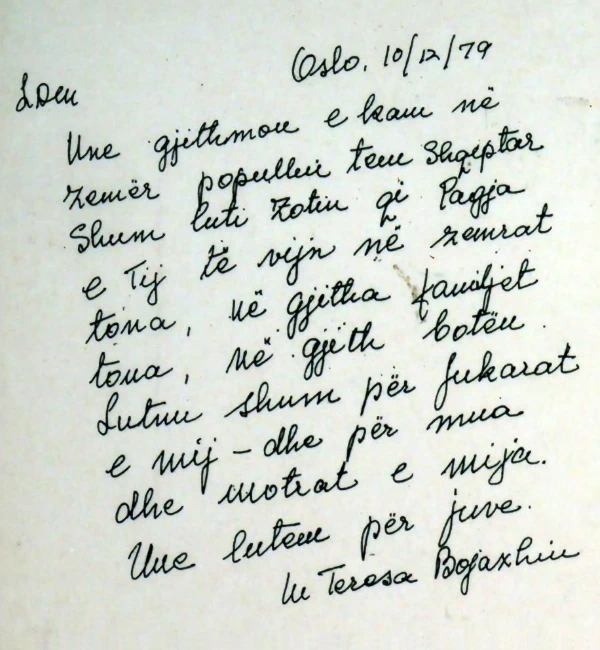 Oslo. 10/12/79
LDM
Une gjithmon e kam në
zemër popullin tem Shqeptar
Shum luti Zotin qi Pagja
e Tij të vijn në zemrat
tona, në gjitha familjet
tona, në gjith botën.
Lutnu shum për fukarat
e mij – dhe për mua
dhe motrat e mija.
Une lutem për juve.
M Teresa Bojaxhiu